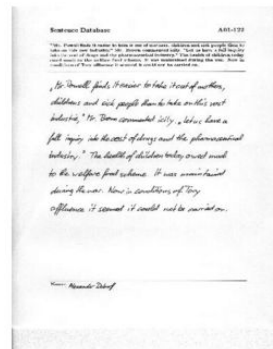 Sentence Database A01-122
"Mr. Powell finds it easier to take it out of mothers, children and sick people than to
take on this vast industry," Mr. Brown commented icily. "Let us have a full inquiry
into the cost of drugs and the pharmaceutical industry." The health of children today
owed much to the welfare food scheme. It was maintained during the war. Now in
conditions of Tory affluence it seemed it could not be carried on.
„Mr. Powell finds it easier to take it out of mothers,
children and sick people than to take on this vast
industrie," Mr. Brown commented icily. „Let us have a
full inquiry into the cost of drugs and the pharmaceutical
industry." The health of children today owed much
to the welfare food scheme. It was maintained
during the war. Now in conditions of Tory
affluence it seemed it could not be carried on.
Name: Alexander